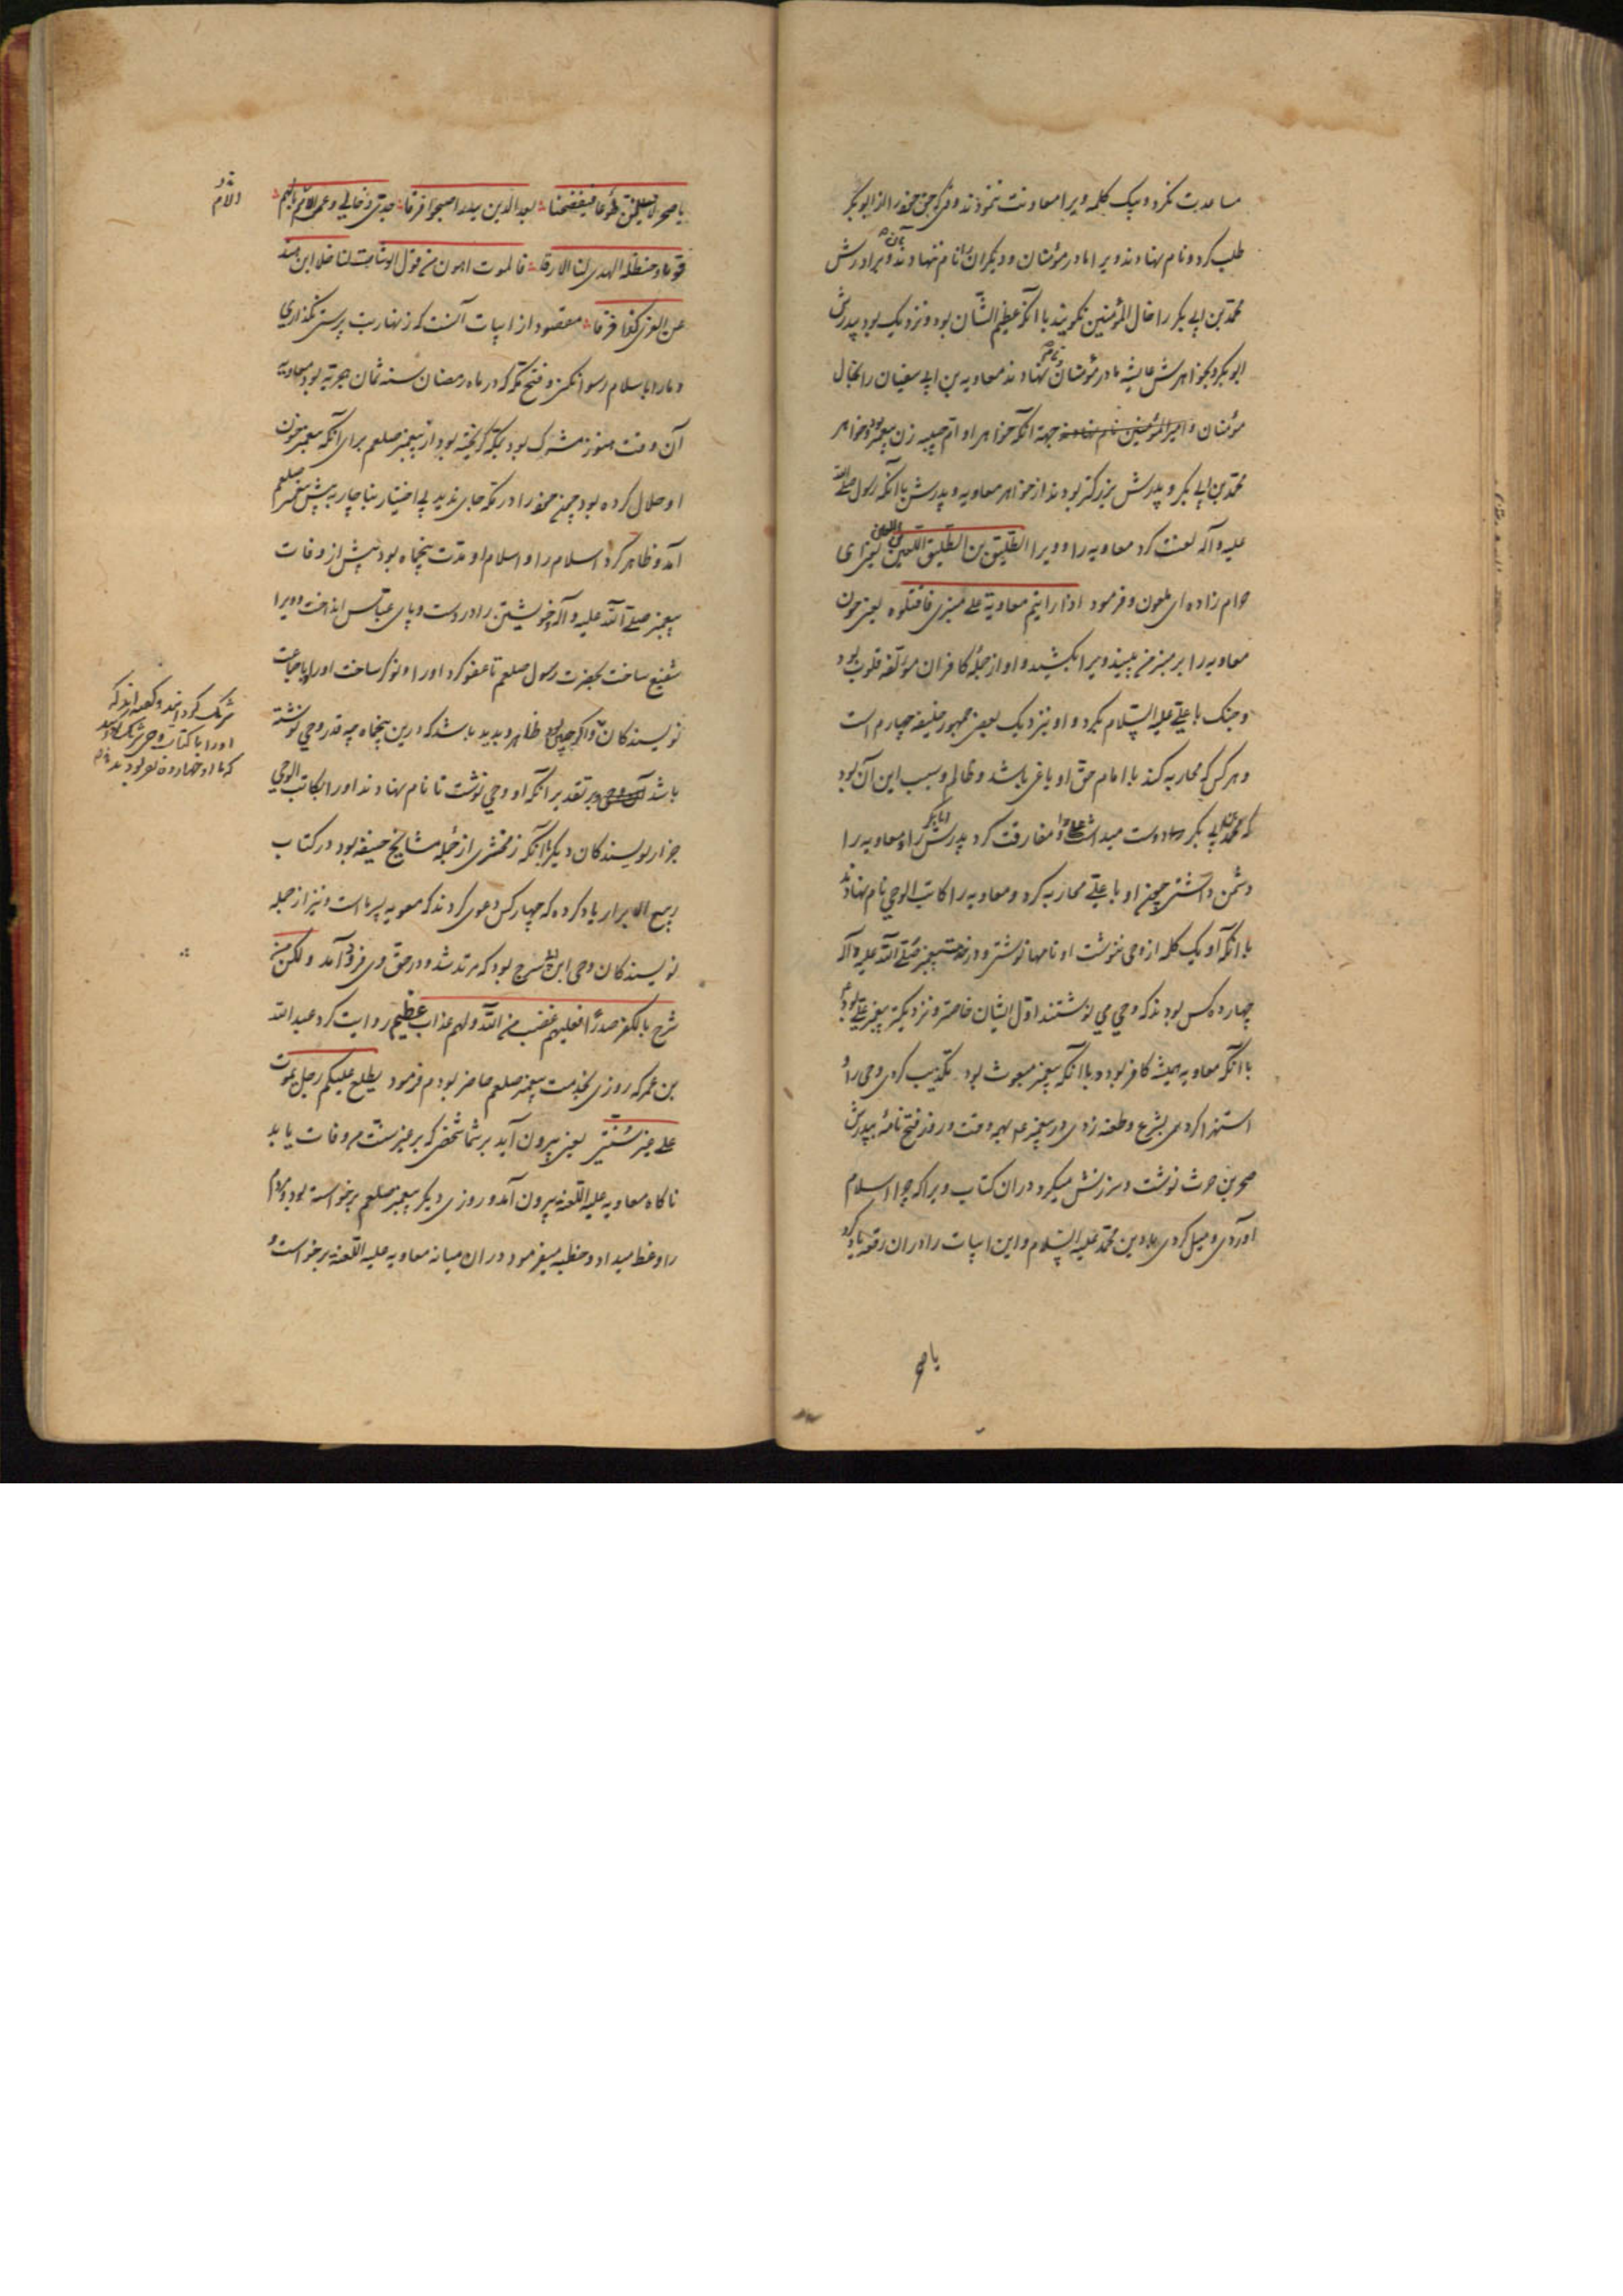 مساعدت نکرد و بیک کلمه ویرا معاونت ننمودند وقتی که حق خود را از ابو بکر
طلب کرد و نام نهادند ویرا مادر مؤمنان و دیگران را بآن نام ننهادند و برادرش
محمد بن ابی بکر را خال المؤمنین نگویند با آنکه عظیم الشان بود و نزدیک بود پدرش
ابو بکر و خواهرش عایشه مادر مؤمنان و نام نهادند معاویه بن ابی سفیان را بخال
مؤمنان جهة آنکه خواهر او ام حبیبه زن پیغمبر بود و خواهر
محمد بن ابی بکر و پدرش بزرگتر بودند از خواهر معاویه و پدرش با آنکه رسول صلی الله
علیه و آله لعنت کرد معاویه را و ویرا الطلیق بن الطلیق اللعین بن اللعین یعنی ای
حرام زاده ای ملعون و فرمود اذا رایتم معاویة علی منبری فاقتلوه یعنی چون
معاویه را بر منبر من ببینید ویرا بکشید و او از جمله کافران مؤلفه قلوب بود
و جنک با علی علیه السلام بکرد و او نزدیک بعضی جمهور خلیفه چهارم است
و هر کس که محاربه کند با امام حق او باغی باشد و ظالم و سبب این آن بود
که محمد بن ابی بکر دوست میداشت علی را و مفارقت کرد پدرش ابا بکر را و معاویه را
دشمن داشتن چون او با علی محاربه کرد و معاویه را کاتب الوحی نام نهادند
با آنکه او یک کلمه از وحی ننوشت او نامها نوشتی و در خدمت پیغمبر صلی الله علیه و آله
چهارده کس بودند که وحی می نوشتند اول ایشان خاصتر و نزدیکتر به پیغمبر علی بود
با آنکه معاویه همیشه کافر بوده با آنکه پیغمبر مبعوث بود تکذیب کردی وحی را و
استهزا کردی بشرع و طعنه زدی در پیغمبر همه وقت و روز فتح نامه به پدرش
صخر بن حرث نوشت و سرزنش میکرد در ان کتاب ویرا که چرا اسلام
آوردی و میل کردی بدین محمد علیه السلام و این ابیات را در ان رقعه یاد کرد
یا صخر
یا صخر لا تسلمن طوعا فتفضحنا بعد الذین ببدر اصبحوا فرقا جدی و خالی و عم الام یا لهم
قوما و حنظلة المهدی لنا الارقا فالموت اهون من قول الوشاة لنا خلا ابن هند
عن العزی کذا فرقا مقصود از ابیات آنست که زنهار بت پرستی نگذاری
و ما را باسلام رسوا نکنی و فتح مکه که در ماه رمضان سنه ثمان هجریه بود معاویه
آن وقت هنوز مشرک بود بمکه گریخته بود از پیغمبر صلعم برای آنکه پیغمبر خون
او حلال کرده بود چون خود را در مکه جای ندید بی اختیار بناچار به پیش پیغمبر صلعم
آمد و ظاهر کرد اسلام را و اسلام او مدت پنجماه بود پیش از وفات
پیغمبر صلی الله علیه و آله خویشتن را در دست و پای عباس انداخت و ویرا
شفیع ساخت بحضرت رسول صلعم تا عفو کرد او را و نوکر ساخت او را با جماعت
نویسندکان و اگر چنین بود ظاهر و پدید باشد که درین پنجماه چه قدر وحی نوشته
باشد بر تقدیر آنکه او وحی نوشت تا نام نهادند او را بکاتب الوحی
جز از نویسندکان دیگر با آنکه زمخشری از جمله مشایخ حنیفه بود در کتاب
ربیع الابرار یاد کرده که چهار کس دعوی کردند که معویه پسر ماست و نیز از جمله
نویسندکان وحی ابن ابی سرح بود که مرتد شد و در حق وی فرود آمد و لکن من
شرح بالکفر صدرا فعلیهم غضب من الله و لهم عذاب عظیم روایت کرد عبد الله
بن عمر که روزی بخدمت پیغمبر صلعم حاضر بودم فرمود یطلع علیکم رجل یموت
علی غیر سنتی یعنی بیرون آید بر شما شخصی که بر غیر سنت من وفات یابد
ناگاه معاویه علیه اللعنه بیرون آمد و روزی دیگر پیغمبر صلعم برخواسته بود و مردم
را وعظ میداد و خطبه میفرمود در ان میانه معاویه علیه اللعنه برخواست و
شریک کردانید و
او را با کتاب وحی شریک